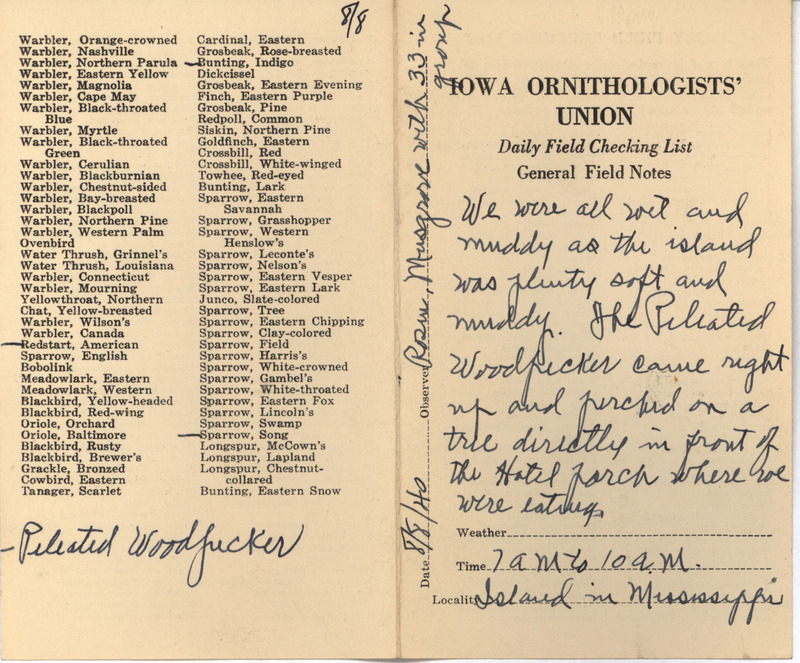 8/8
Warbler, Orange-crowned
Warbler, Nashville
Warbler, Northern Parula
Warbler, Eastern Yellow
Warbler, Magnolia
Warbler, Cape May
Warbler, Black-throated
Blue
Warbler, Myrtle
Warbler, Black-throated
Green
Warbler, Cerulian
Warbler, Blackburnian
Warbler, Chestnut-sided
Warbler, Bay-breasted
Warbler, Blackpoll
Warbler, Northern Pine
Warbler, Western Palm
Ovenbird
Water Thrush, Grinnel's
Water Thrush, Louisiana
Warbler, Connecticut
Warbler, Mourning
Yellowthroat, Northern
Chat, Yellow-breasted
Warbler, Wilson's
Warbler, Canada
Redstart, American
Sparrow, English
Bobolink
Meadowlark, Eastern
Meadowlark, Western
Blackbird, Yellow-headed
Blackbird, Red-wing
Oriole, Orchard
Oriole, Baltimore
Blackbird, Rusty
Blackbird, Brewer's
Grackle, Bronzed
Cowbird, Eastern
Tanager, Scarlet
Cardinal, Eastern
Grosbeak, Rose-breasted
Bunting, Indigo
Dickcissel
Grosbeak, Eastern Evening
Finch, Eastern Purple
Grosbeak, Pine
Redpoll, Common
Siskin, Northern Pine
Goldfinch, Eastern
Crossbill, Red
Crossbill, White-winged
Towhee, Red-eyed
Bunting, Lark
Sparrow, Eastern
Savannah
Sparrow, Grasshopper
Sparrow, Western
Henslow's
Sparrow, Leconte's
Sparrow, Nelson's
Sparrow, Eastern Vesper
Sparrow, Eastern Lark
Junco, Slate-colored
Sparrow, Tree
Sparrow, Eastern Chipping
Sparrow, Clay-colored
Sparrow, Field
Sparrow, Harris's
Sparrow, White-crowned
Sparrow, Gambel's
Sparrow, White-throated
Sparrow, Eastern Fox
Sparrow, Lincoln's
Sparrow, Swamp
Sparrow, Song
Longspur, McCown's
Longspur, Lapland
Longspur, Chestnut-
collared
Bunting, Eastern Snow
- Pileated Woodpecker
Date 8/8/40 Observer Rosene, Musgrove with 33 in
group
IOWA ORNITHOLOGISTS'
UNION
Daily Field Checking List
General Field Notes
We were all wet and
muddy as the island
was plenty soft and
muddy. The Pileated
Woodpecker came right
up and perched on a
tree directly in front of
the Hotel porch where we
were eating
Weather
Time 7 A M to 10 a.M.
Locality Island in Mississippi